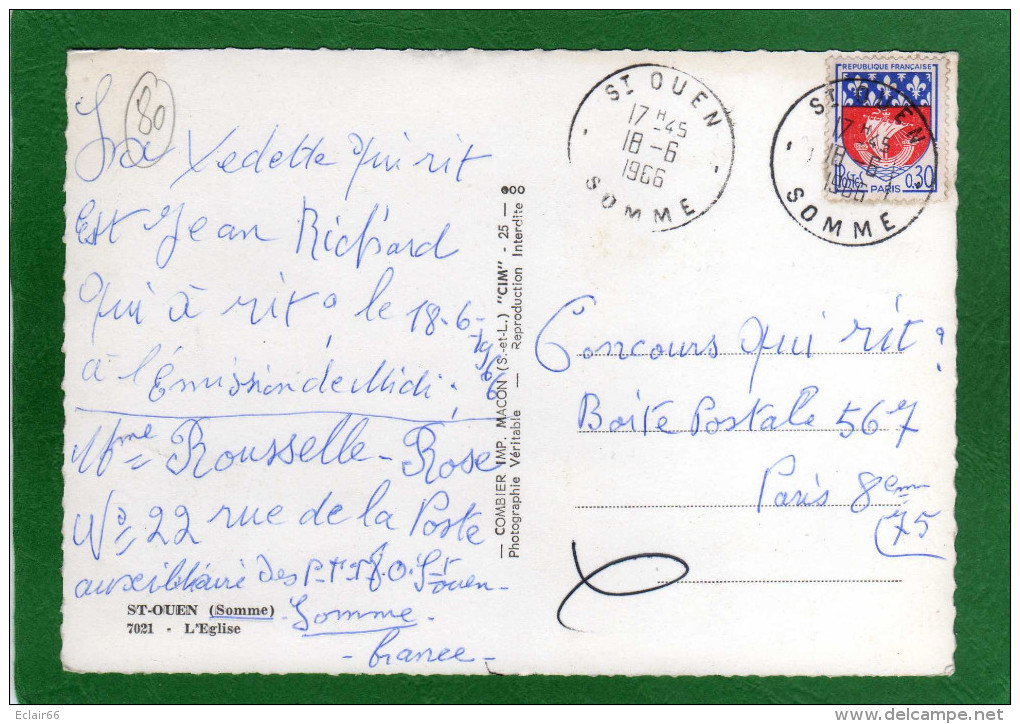 80
La Vedette qui rit
Est Jean Richard
qui à rit le 18-6-1966
à l'Émission de Midi.
Mme Rousselle-Rose
No 22 rue de la Poste
auxilliaire des P.T.T. St Ouen-
Somme-
-france-
ST-OUEN (Somme)
7021 - L'Eglise
— COMBIER IMP. MACON (S.-et-L.) "CIM" - 25 —
Photographie Véritable — Reproduction Interdite
ST OUEN
17H-45
18-6
1966
SOMME
REPUBLIQUE FRANÇAISE
POSTES
PARIS
0,30
ST OUEN
17H-45
18-6
1966
SOMME
Concours qui rit
Boite Postale 567
Paris 8eme
75
Eclair66
www.delcampe.net